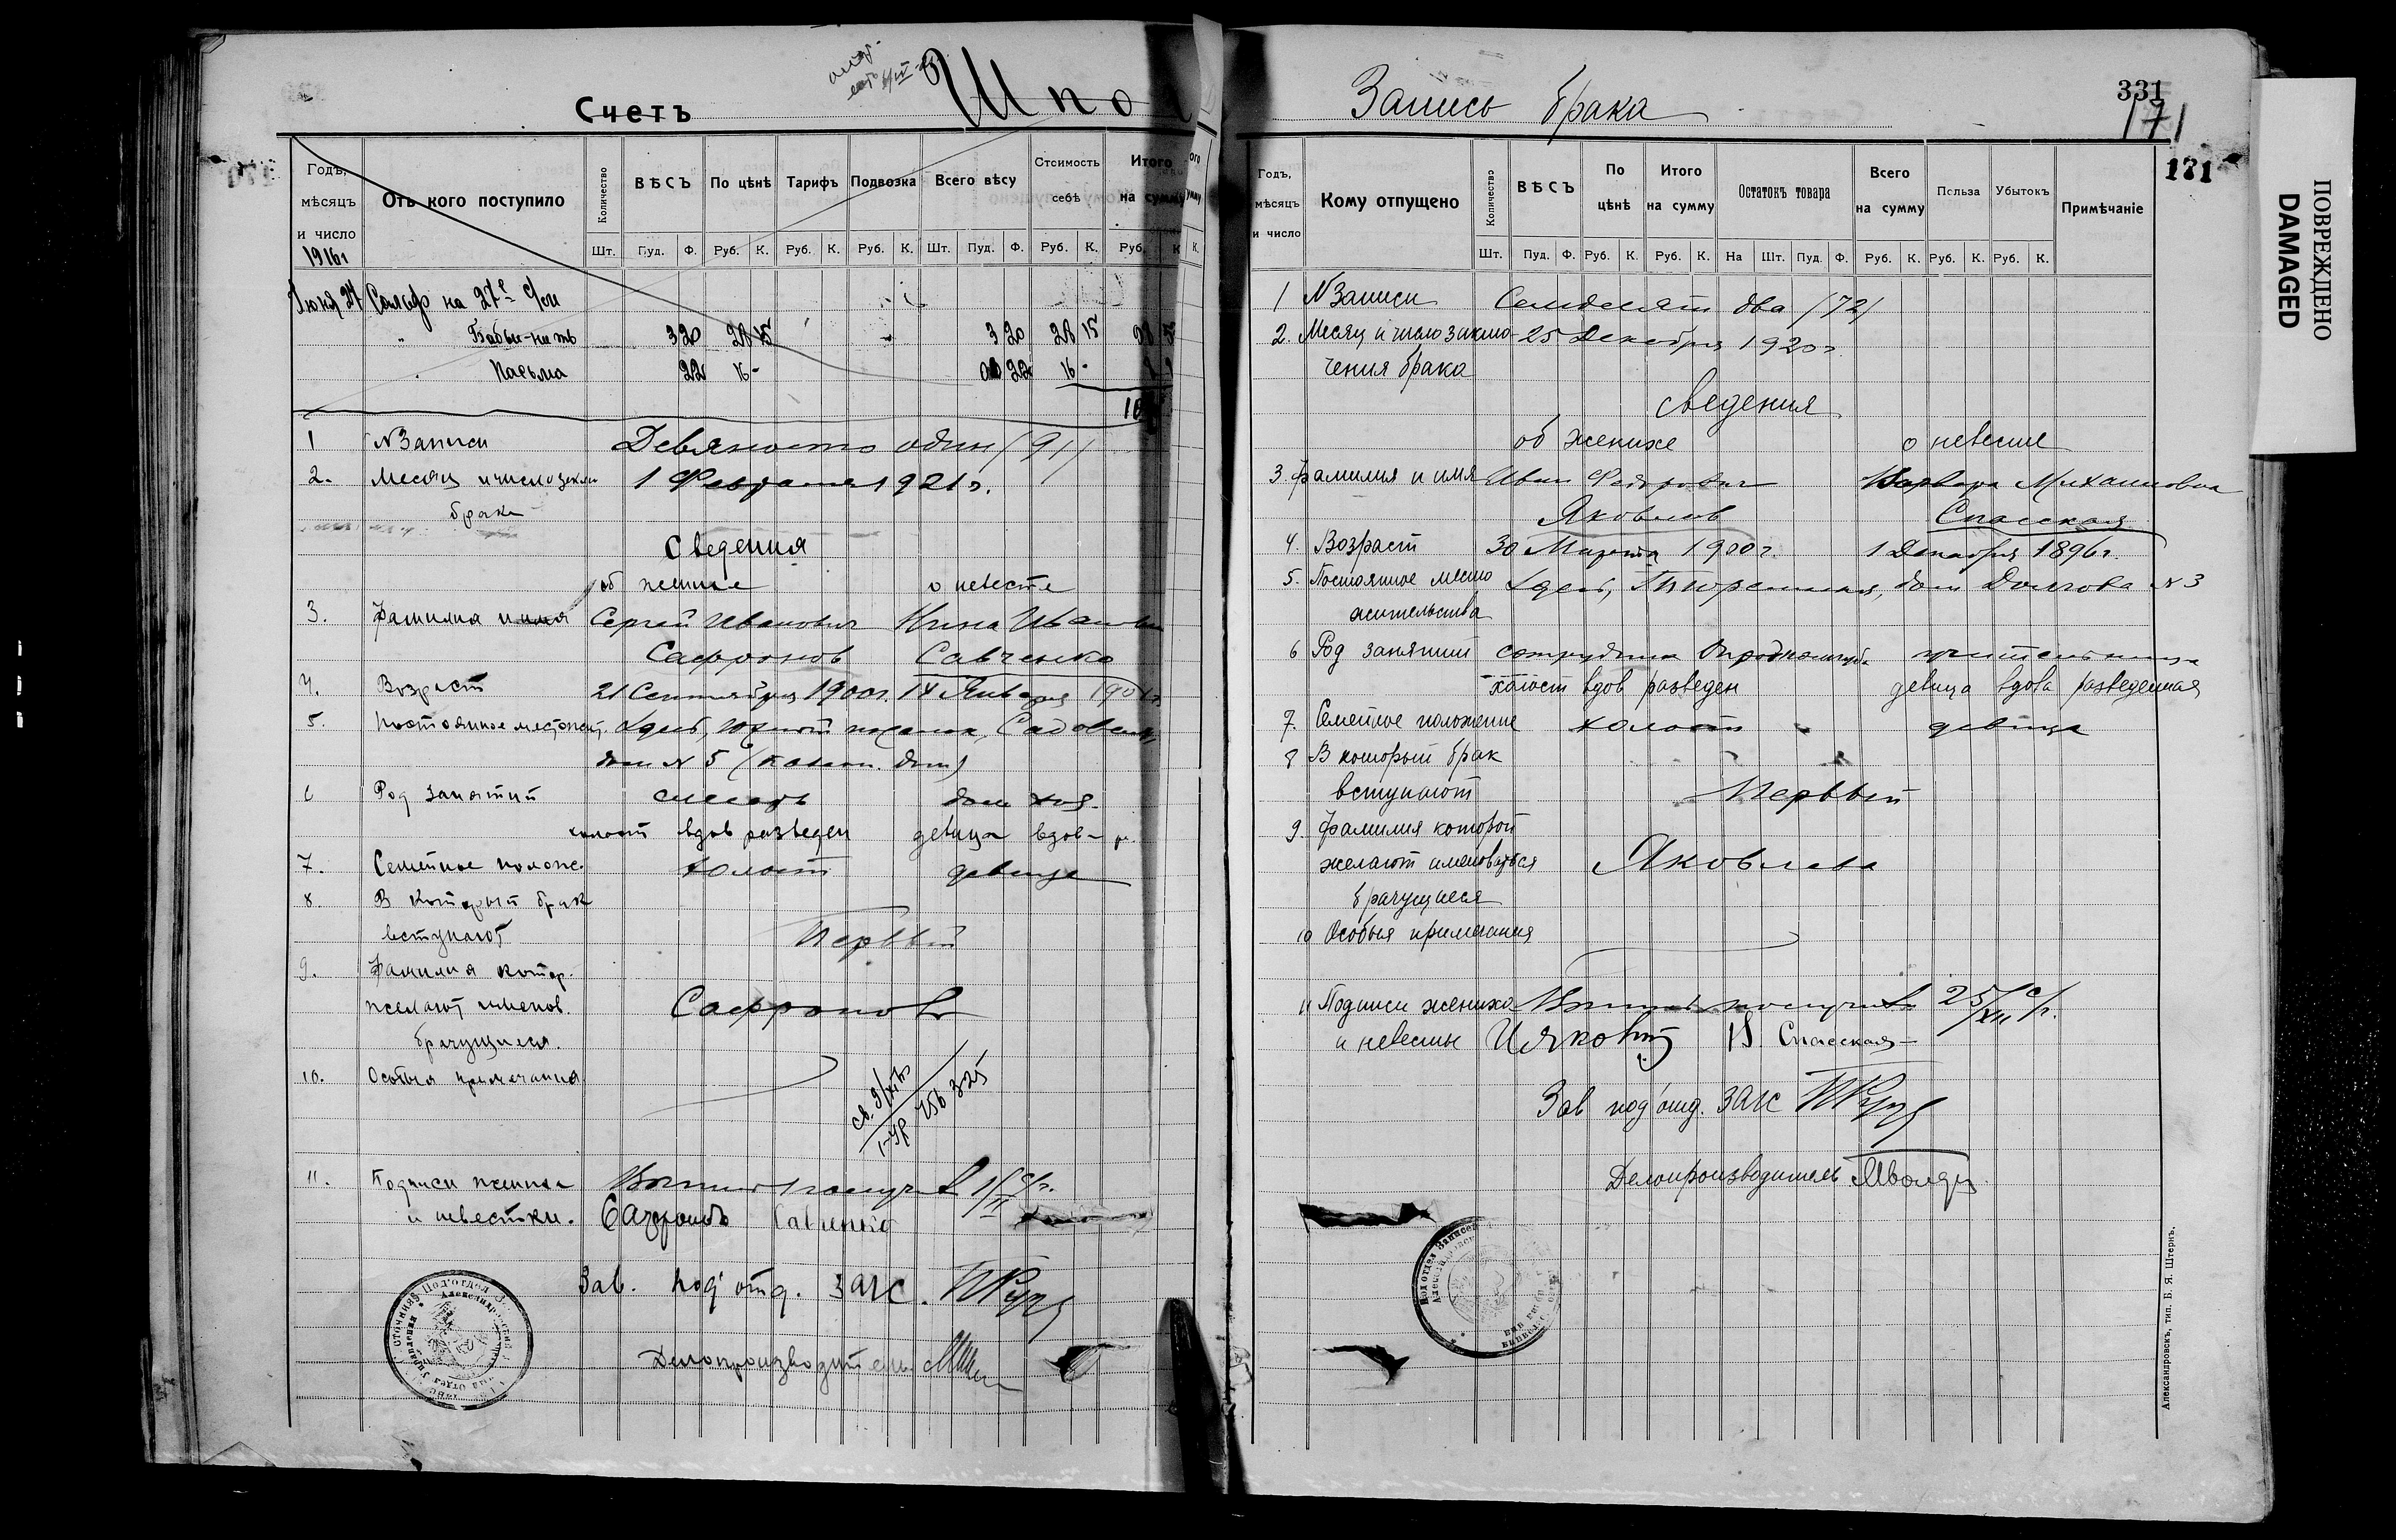 Счетъ
Шпо
Годъ, мѣсяцъ и число
Отъ кого поступило
Количество
ВѢСЪ
По цѣнѣ
Тарифъ
Подвозка
Всего вѣсу
Стоимость себѣ
Итого на сумму
Шт. Пуд. Ф. Руб. К. Руб. К. Руб. К. Шт. Пуд. Ф. Руб. К. Руб. К.
1916г
Июня 27 на 27
320 28 15 3 20 28 15
22 16 - 16 -
1 N Записи Девяносто один (91)
2. Месяц и число закл 1 Февраля 1921г.
брака
Сведения
об женихе о невесте
3. Фамилия и имя Сергей Иванович Нина Ивановна
Сафронов Савченко
4. Возраст 21 Сентября 1900г. 14 Января 1901г.
5. Постоянное мест. жит. Здесь, Южный поселок, Садовая,
дом N 5 (казен. дом)
6 Род занятий слесарь дом. хоз.
холост вдов разведен девица вдов- р.
7. Семейное полож. холост девица
8. В который брак
вступают Первый
9. Фамилия котор.
желают именов. Сафронов
брачущиеся.
10. Особыя примечания
11. Подписи жениха Выпись получил 1/II с/г.
и невестки. Сафроновъ Савченко
Зав. под'отд. ЗАГС.
Делопроизводитель
Запись брака
331
171
171
Годъ, мѣсяцъ и число
Кому отпущено
Количество
ВѢСЪ
По цѣнѣ
Итого на сумму
Остатокъ товара
Всего на сумму
Польза
Убытокъ
Примѣчаніе
Шт. Пуд. Ф. Руб. К. Руб. К. На Шт. Пуд. Ф. Руб. К. Руб. К. Руб. К.
1 N Записи Семдесят два (72)
2. Месяц и число заклю- 25 Декабря 1920г.
чения брака
Сведения
об женихе о невесте
3 Фамилия и имя Иван Федорович Варвара Михаиловна
Яковлев Спасская
4. Возраст 30 Марта 1900г. 1 Декабря 1896г.
5. Постоянное место Здесь, Тюремная, дом Долгова N 3
жительства
6 Род занятий сотрудник Опродкомгуба учительница
холост вдов разведен девица вдова разведенная
7. Семейное положение холост девица
8 В который брак
вступают Первый
9. Фамилия которой
желают именоваться Яковлева
брачущиеся
10 Особыя примечания
11 Подписи жениха Выпись получил 25/XII с/г.
и невесты ИЯковлев В Спасская
Зав под'отд. ЗАГС
Делопроизводитель
Александровскъ, тип. Б. Я. Штернъ.
ПОВРЕЖДЕНО
DAMAGED